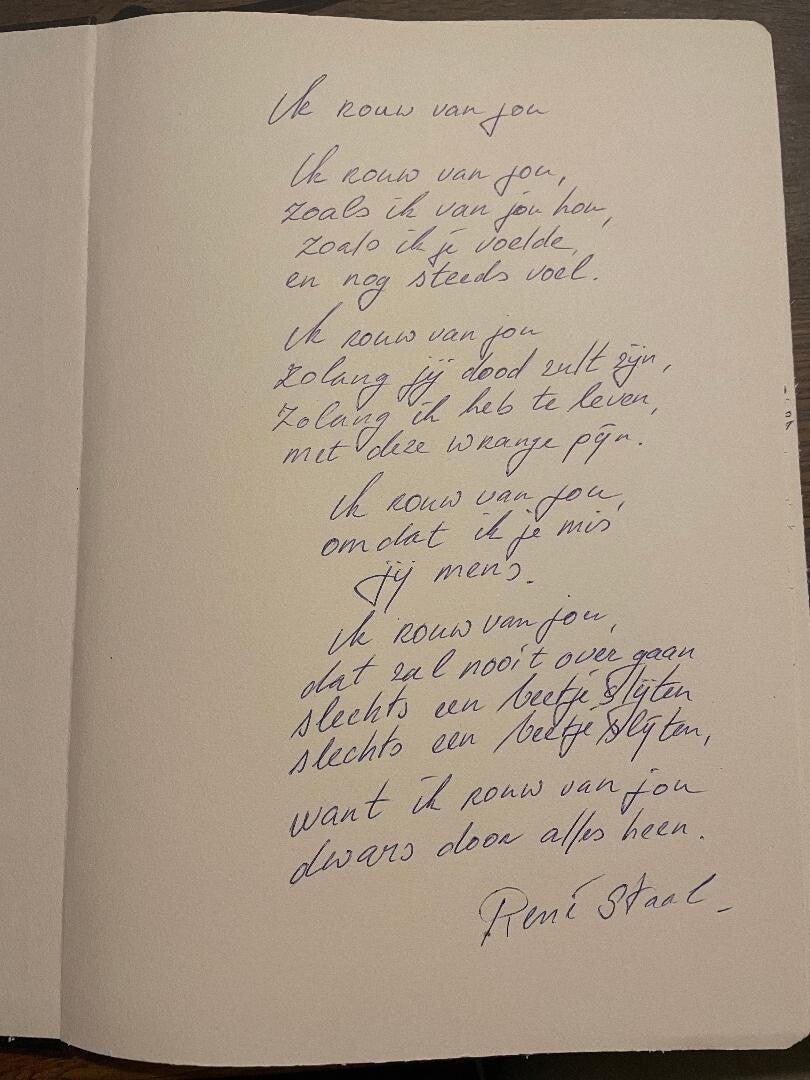 Ik rouw van jou
Ik rouw van jou,
zoals ik van jou hou,
zoals ik je voelde,
en nog steeds voel.
Ik rouw van jou
Zolang jij dood zult zijn,
Zolang ik heb te leven,
met deze wrange pijn.
Ik rouw van jou,
omdat ik je mis
jij mens.
Ik rouw van jou,
dat zal nooit over gaan
slechts een beetje slijten
slechts een beetje slijten,
want ik rouw van jou
dwars door alles heen.
René Staal